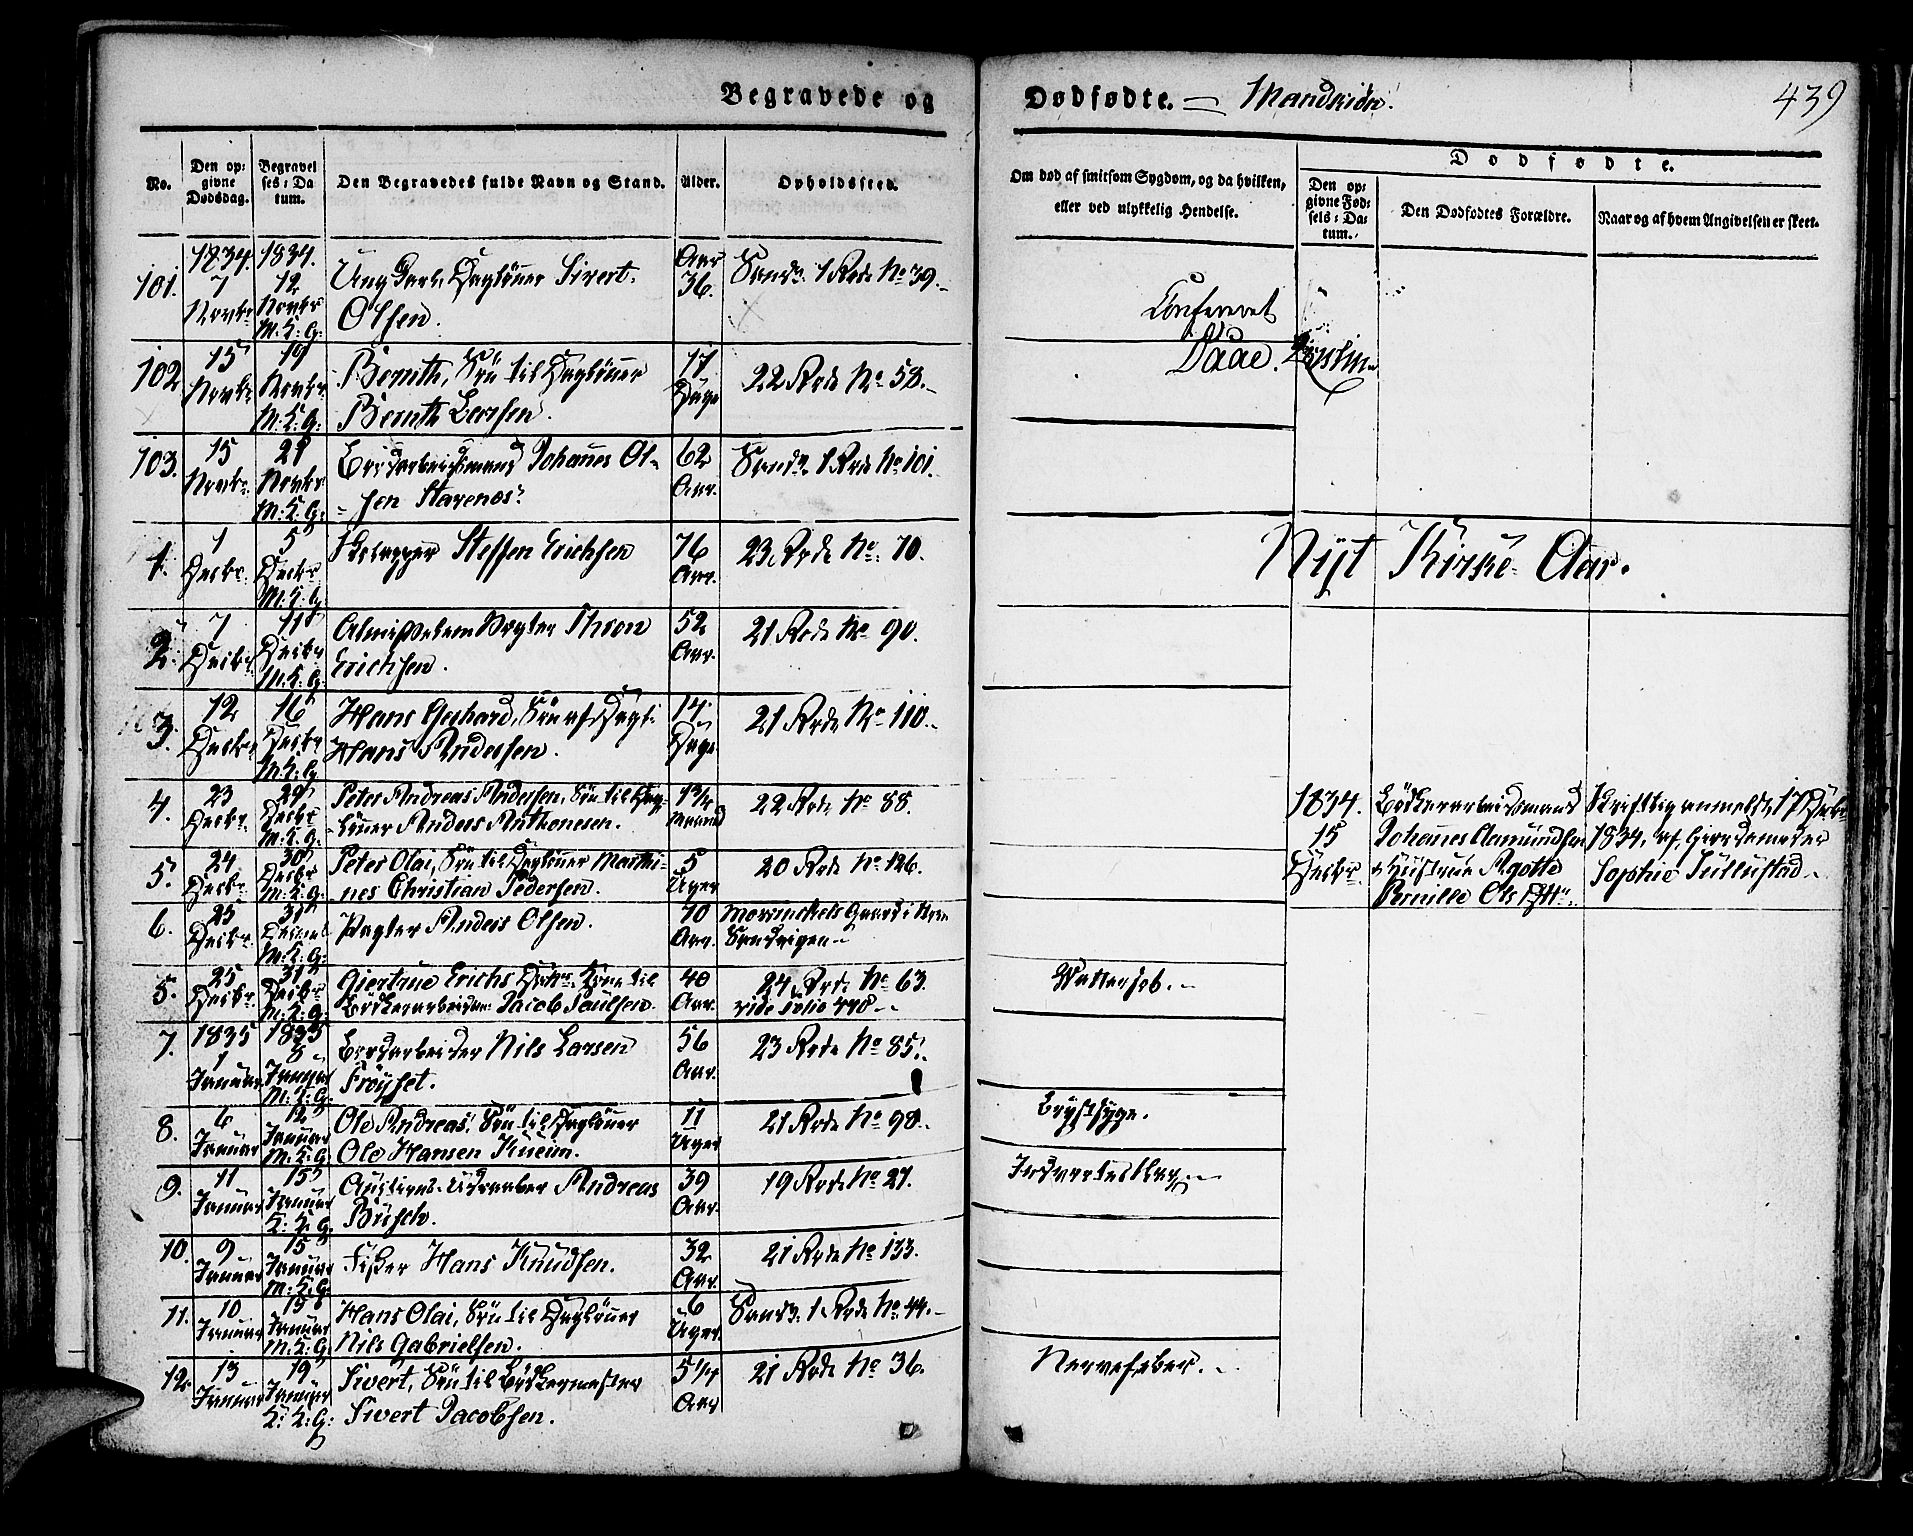 Begravede og Dødfødte. — Mandkiøn.
439
No.
Den opgivne Dødsdag.
Begravelses-Datum.
Den Begravedes fulde Navn og Stand.
Alder.
Opholdssted.
Om død af smitsom Sygdom, og da hvilken,
eller ved ulykkelig Hendelse.
Dødfødte.
Den opgivne Fødsels-Datum.
Den Dødfødtes Forældre.
Naar og af hvem Angivelsen er skeet.
101. 1834. 7 Novbr. 1834. 12 Novbr M: K: G: Ung Karl, Dagløner Sivert Olsen. Aar 36. Sandv. 1 Rode No 39.
Confereret
Daae.
102 15 Novbr. 19 Novbr. M: K: G: Bernth, Søn til Dagløner Bernth Larsen. 17 Dage 22 Rode No 58.
103. 15 Novbr. 21 Novbr M: K: G: Johanes Olsen Stavenes. 62 Aar. Sandv. 1 Rode No 101.
1. 1 Decbr. 5 Decbr M: K: G: Steffen Erichsen 76 Aar. 23 Rode No 70.
Nyt Kirke Aar.
2. 7 Decbr 11 Decbr M: K: G: Thron Erichsen. 52 Aar. 21 Rode No 90.
3. 12 Decbr 16 Decbr M: K: G: Hans Gerhard, Søn af Dagl: Hans Andersen. 14 Dage 21 Rode No 110.
4. 23 Decbr. 29 Decbr M: K: G: Peter Andreas Andersen, Søn til Dagløner Anders Anthonesen. 22 Rode No 88.
1834. 15 Decbr. Bødkerarbeidsmand Johanes Aamundsen & Hustrue Agotte Pernille Ols Dttr.
Skriftlig anmeldt 17 Decbr 1834, af Giordemoder Sophie Tullustad
5. 24 Decbr 30 Decbr M: K: G: Peter Olai, Søn til Dagløner Marthines Christian Pedersen. 5 Uger 20 Rode No 126.
6. 23 Decbr. 31 M: K: G: Anders Olsen. 70 Aar. Gaard i Sandvigen
5. 25 Decbr. 31 Decbr M: K: G: Giertrue Erichs Dttr. Kone til Bødkerarbeider Jacob Paulsen. 40 Aar. 24 Rode No 63. vide Folio 440
7. 1835 1 Januar 1835 8 Januar M: K: G: Nils Larsen Frøyset. 56 Aar. 23 Rode No 85.
8. 6 Januar 12 Januar M: K: G: Ole Andreas, Søn til Dagløner Ole Hansen 11 Uger 21 Rode No 98. Brystsyge.
9. 11 Januar 15 Januar K: K: G: Andreas Büsch. 39 Aar. 19 Rode No 27.
10. 9 Januar 15 Januar M: K: G: Fisker Hans Knudsen. 32 Aar. 21 Rode No 133.
11. 10 Januar 15 Januar M: K: G: Hans Olai, Søn til Dagløner Nils Gabrielsen. 6 Uger Sandv. 1 Rode No 44.
12. 13 Januar 19 Januar K: K: G: Sivert, Søn til Bødkermester Sivert Jacobsen. 5 1/4 Aar 21 Rode No 36. Nervefeber.